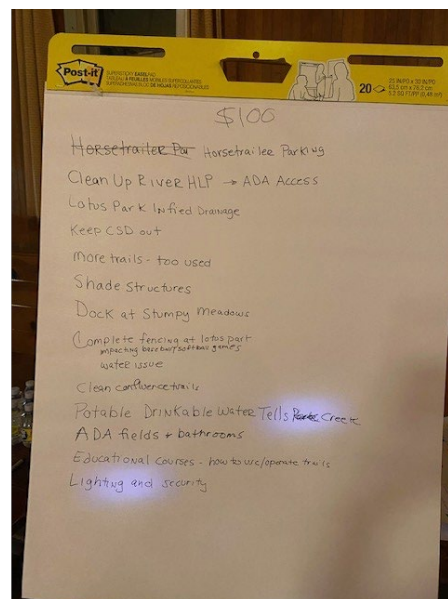 Post-it
SUPER STICKY EASEL PAD
20
25 IN/PO x 30 IN/PO
63,5 cm x 76,2 cm
$100
Horsetrailer Par Horsetrailer Parking
Clean Up River HLP → ADA Access
Lotus Park Infied Drainage
Keep CSD out
more trails - too used
Shade Structures
Dock at Stumpy Meadows
Complete fencing at lotus park
impacting baseball/softball games
water issue
Clean confluence trails
Potable Drinkable Water Tells Creek
ADA fields + bathrooms
Educational courses - how to use/operate trails
Lighting and security